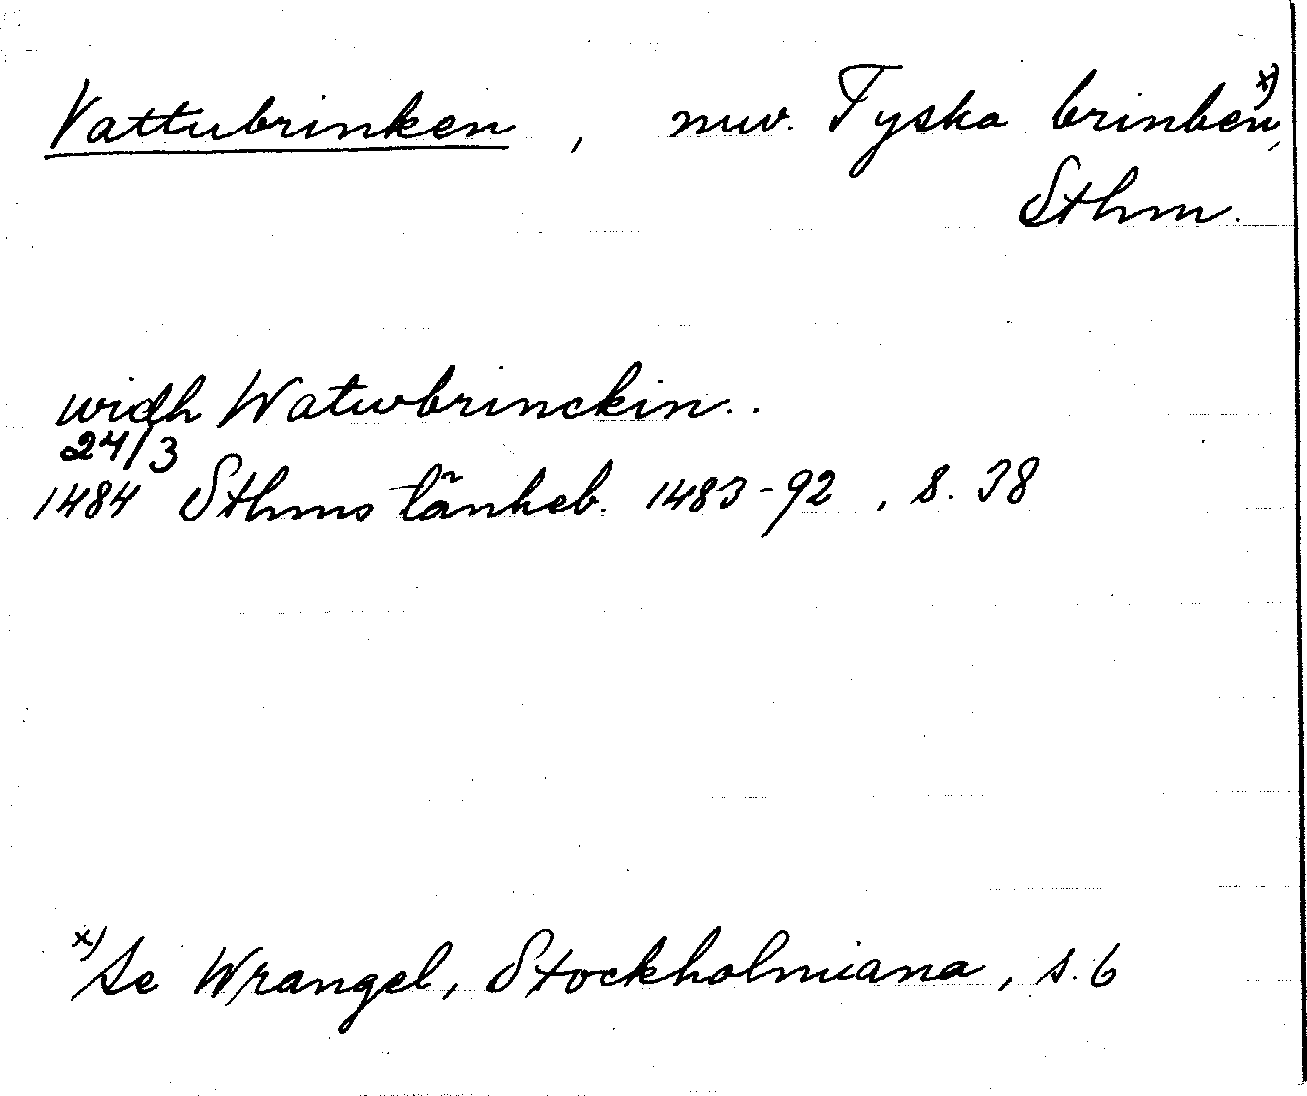 Vattubrinken, nuv. Tyska brinken x),
Sthm.
widh Watwbrinckin..
24/3
1484 Sthms tänkeb. 1483-92, s. 38
x) Se Wrangel, Stockholmiana, s. 6